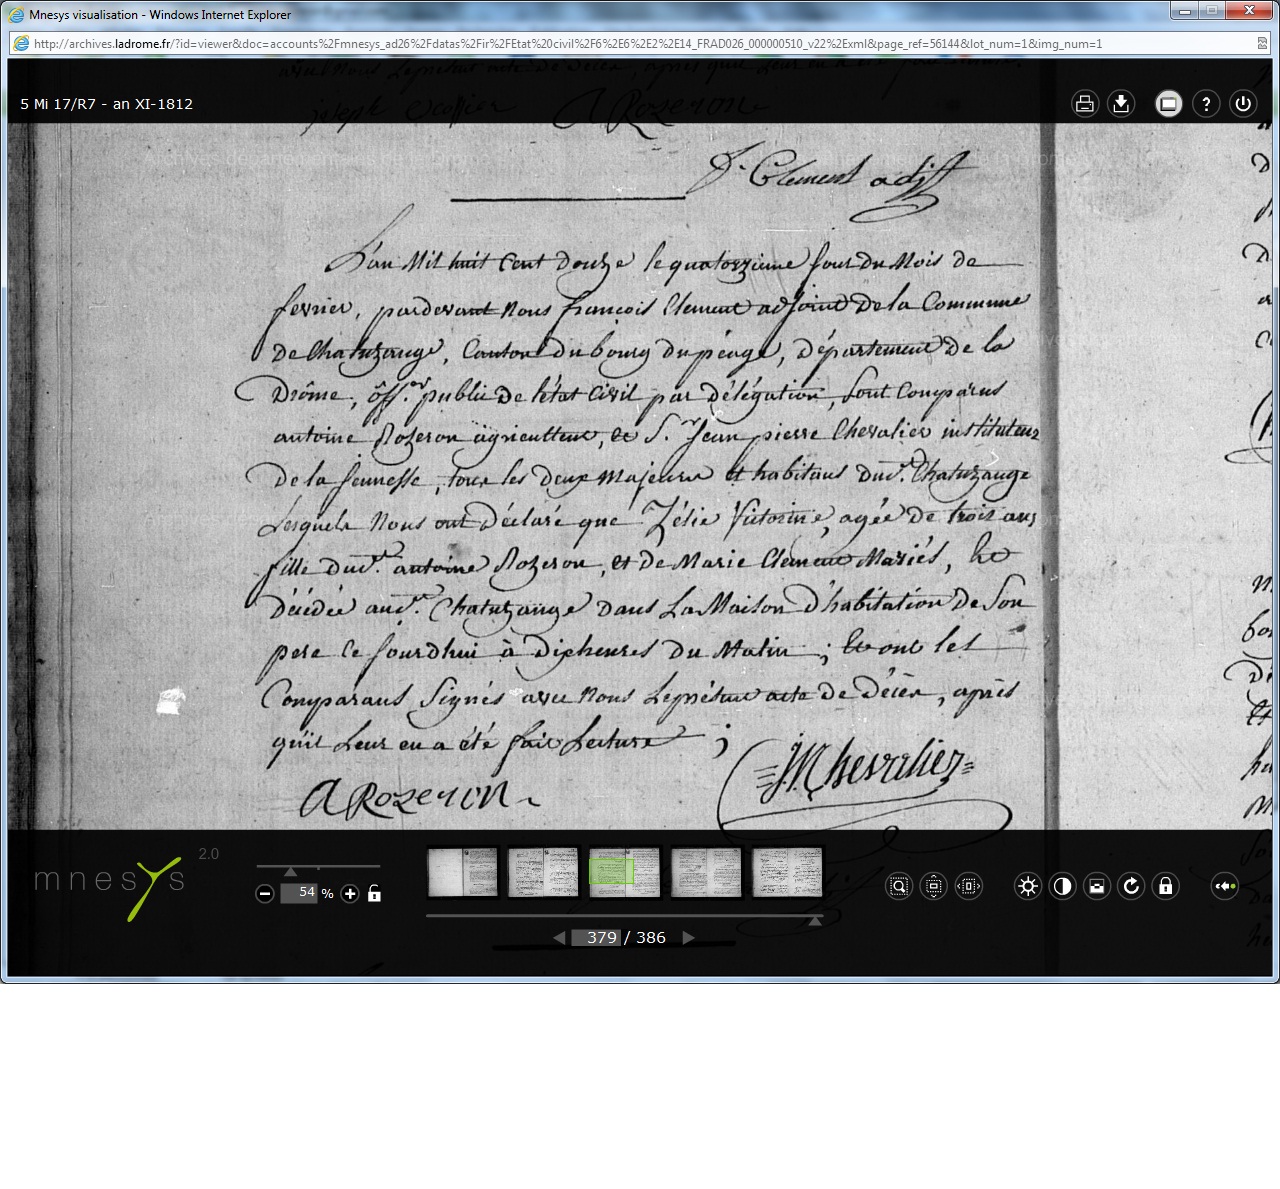 Mnesys visualisation - Windows Internet Explorer
http://archives.ladrome.fr/?id=viewer&doc=accounts%2Fmnesys_ad26%2Fdatas%2Fir%2FEtat%20civil%2F6%2E6%2E2%2E14_FRAD026_000000510_v22%2Exml&page_ref=56144&lot_num=1&img_num=1
5 Mi 17/R7 - an XI-1812
joseph escoffier A Rozeron
f. Clement adjt
L'an Mil huit Cent douze le quatorzieme jour du Mois de
fevrier, pardevant Nous françois Clement adjoint De la Commune
De Chatuzange, Canton du bourg du péage, Département de la
Drôme, off.er public De l'état Civil par délégation, sont Comparus
antoine Rozeron agriculteur, et S.r Jean pierre Chevalier instituteur
De la Jeunesse, tous les deux Majeurs et habitans dud.t Chatuzange
Lesquels Nous ont Déclaré que Zélie Victorine, agée De trois ans
fille dud.t antoine Rozeron, et De Marie Clement Mariés, Est
Décédée aud.t Chatuzange dans La Maison d'habitation De son
pere Ce jourdhui à Dix heures Du Matin ; Et ont les
Comparans Signés avec Nous Le présent acte De Décès, après
qu'il Leur en a été fait Lecture ;
A Rozeron
J.P. Chevalier
mnesys 2.0
54 %
379 / 386